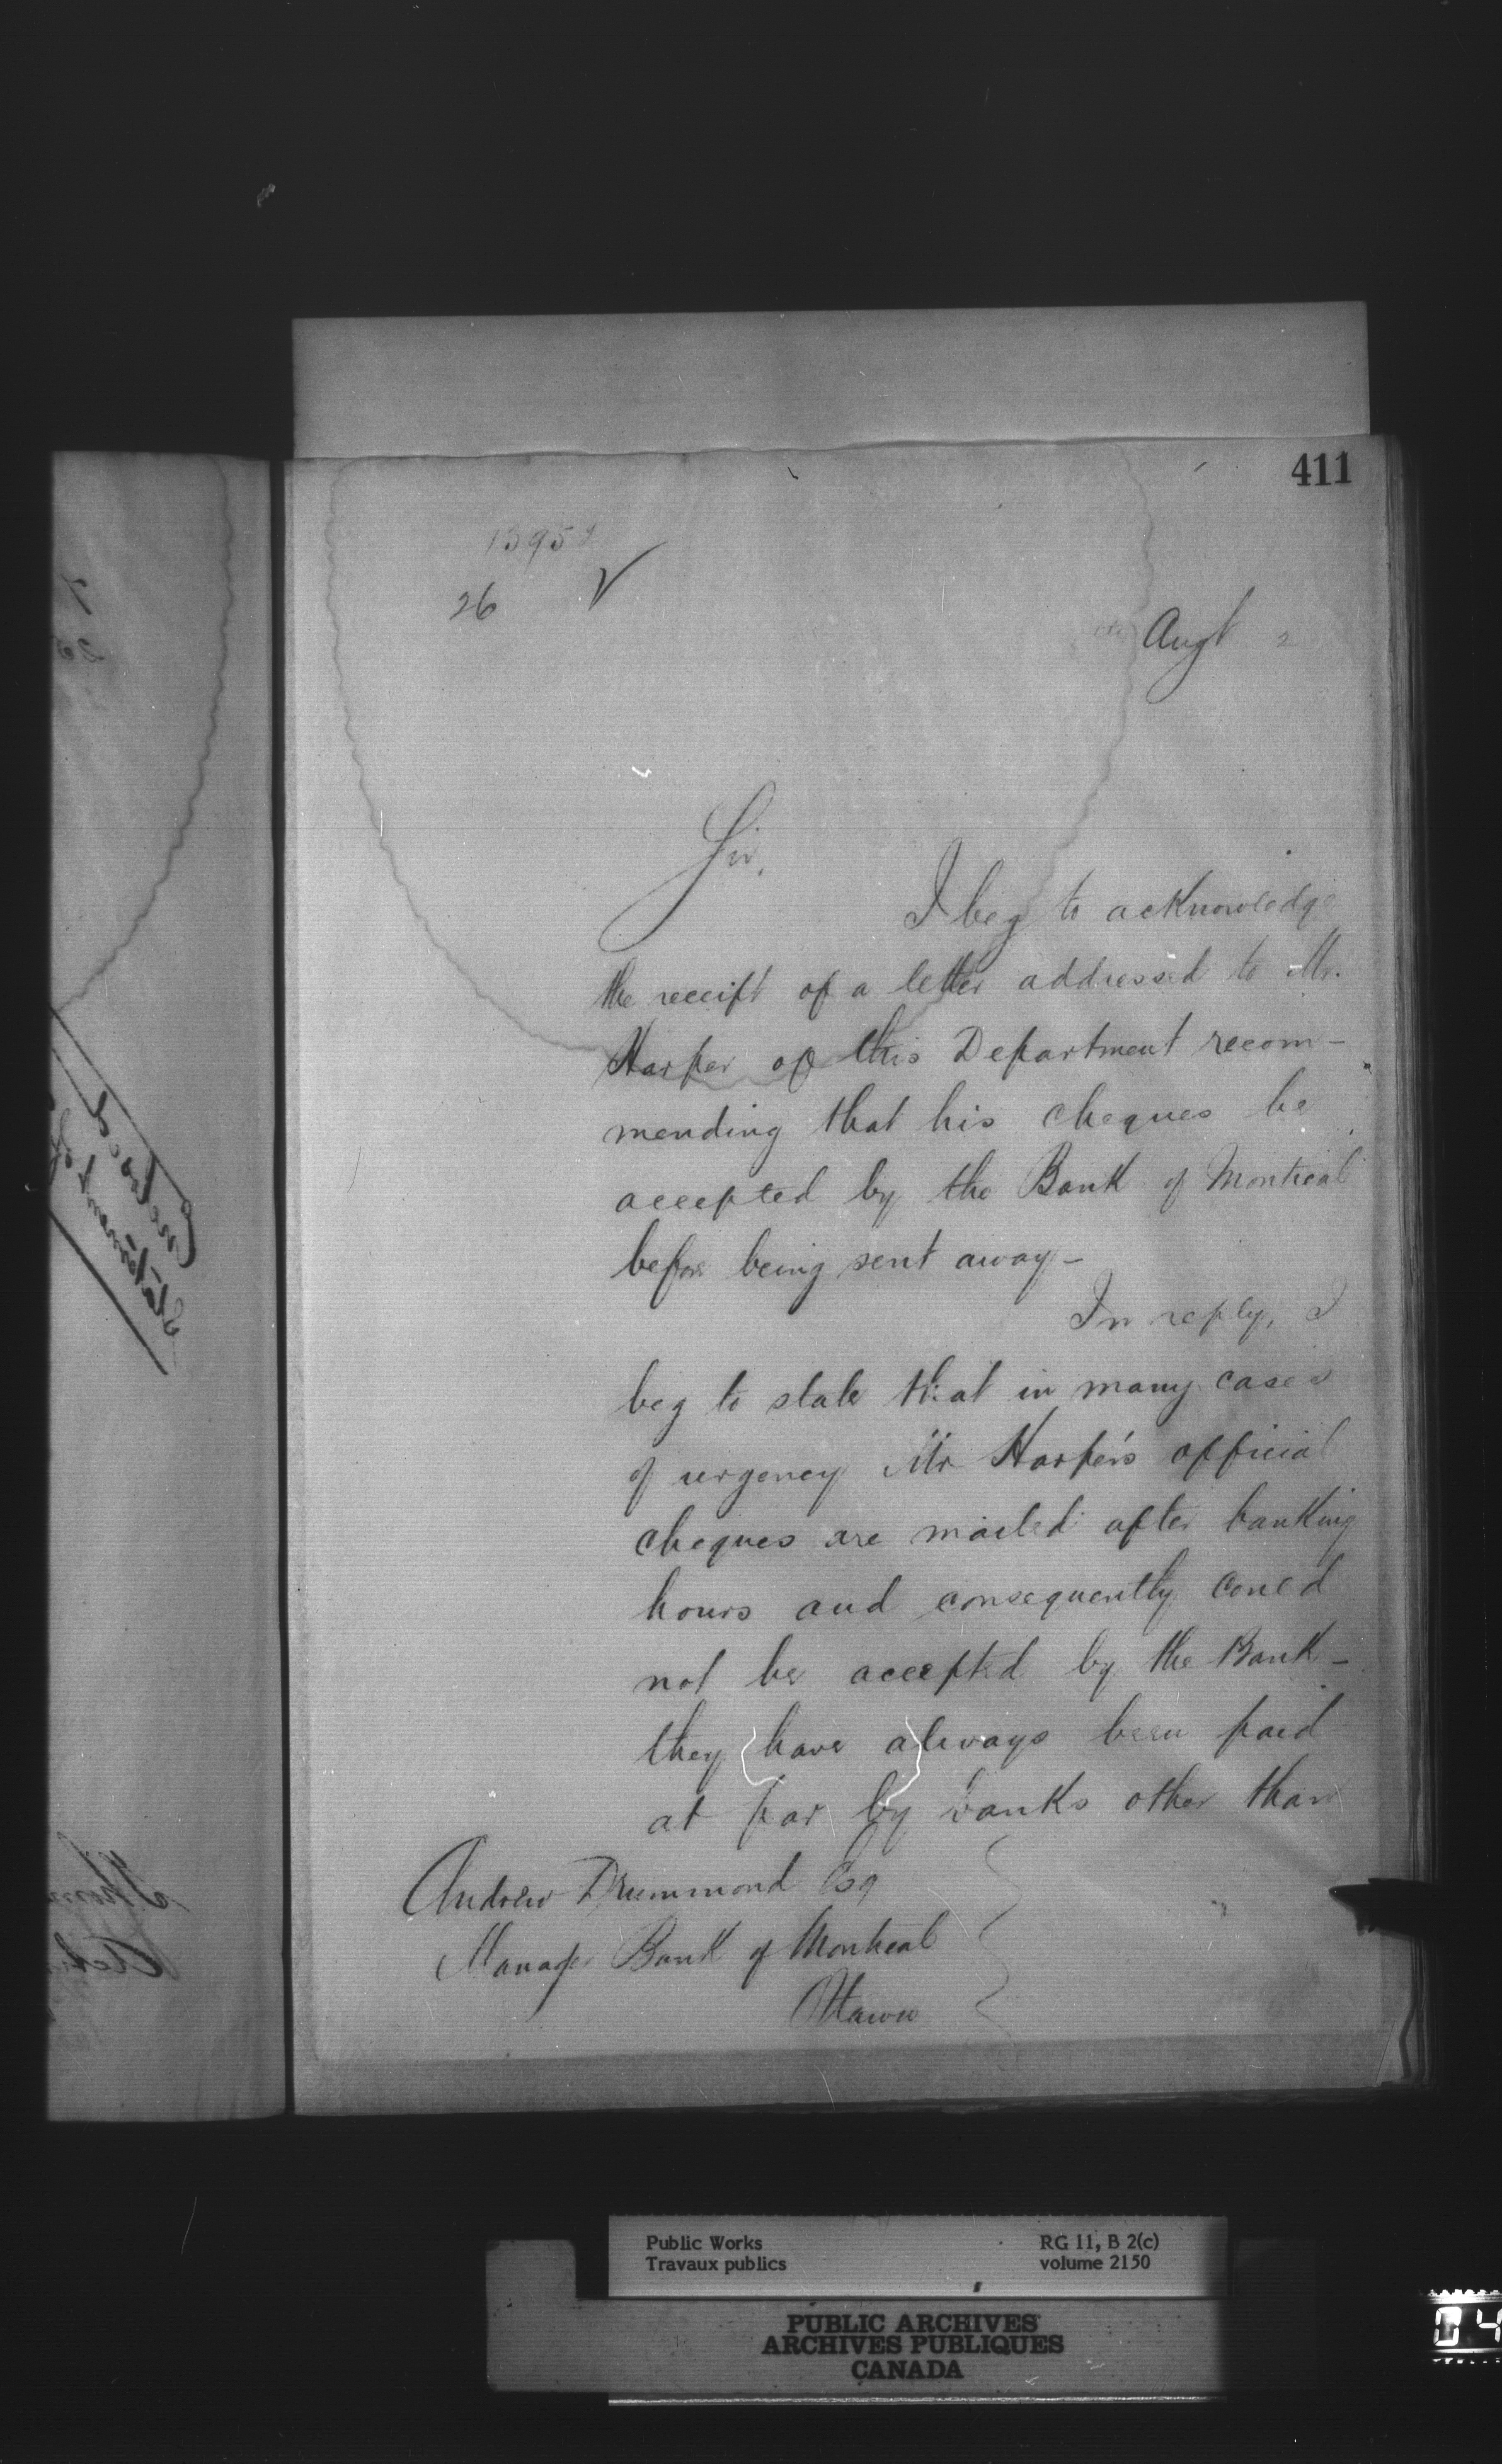 411
26
Augt 2
Sir,
I beg to acknowledge
the receipt of a letter addressed to Mr.
Harper of this Department recom-
mending that his cheques be
accepted by the Bank of Montreal
before being sent away -
In reply, I
beg to state that in many cases
of urgency Mr Harper's official
cheques are mailed after banking
hours and consequently could
not be accepted by the Bank -
they have always been paid
at par by banks other than
Andrew Drummond Esq
Manager Bank of Montreal
Ottawa
Public Works
Travaux publics
RG 11, B 2(c)
volume 2150
PUBLIC ARCHIVES
ARCHIVES PUBLIQUES
CANADA
04